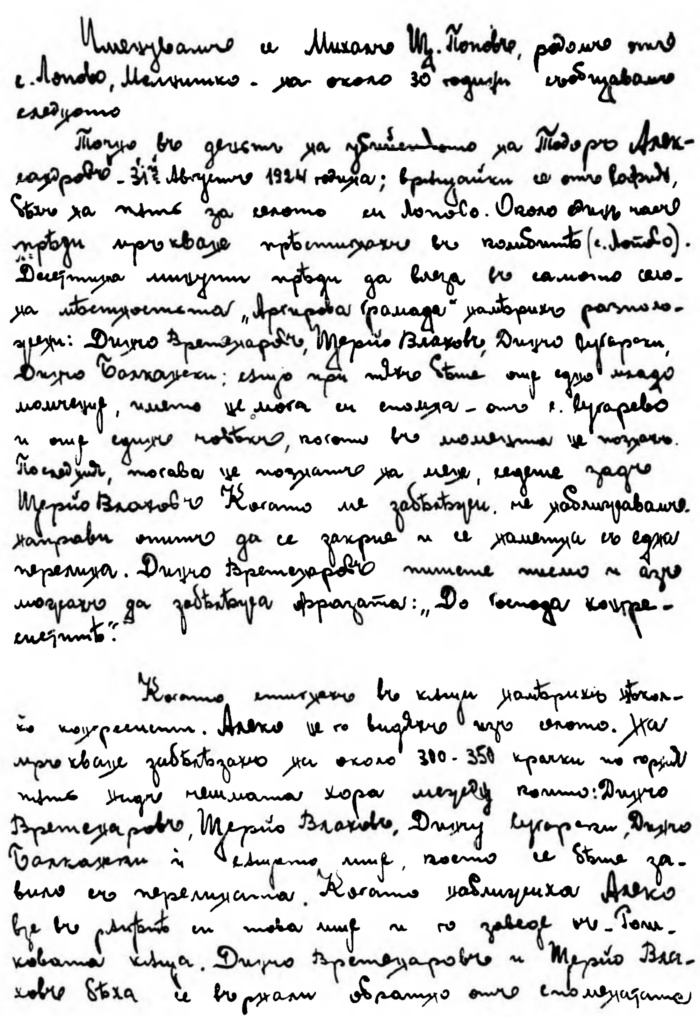 Именувамъ се Михаилъ Щ. Поповъ, родомъ отъ
с. Лопово, Мелнишко - на около 30 години съобщавамъ
следното
Точно въ деньтъ на убийството на Тодоръ Алек-
сандровъ - 31й Августъ 1924 година; връщайки се отъ
бѣхъ на пѫть за селото си Лопово. Около единъ часъ
прѣди мръкване прѣстигнахъ въ колибитѣ (с. Лопово).
Десетина минути прѣди да вляза въ самото село
на мѣстностьта „Аргирова Грамада" намѣрихъ разполо-
жени: Динчо Вретенаровъ, Щерйо Влаховъ, Динчо Вугарски,
Динчо Балкански; също при тѣхъ бѣше още едно младо
момченце, името не мога си спомня - отъ с. Вугарево
и още единъ човѣкъ, когото въ момента не познахъ.
Последния, тогава не познатъ на мене, седеше задъ
Щерйо Влаховъ Когато ме забѣлѣзаха, че наближавамъ
направи опитъ да се закрие и се наметна съ една
перелина. Динчо Вретенаровъ пишеше писмо и азъ
можахъ да забѣлѣжа фразата: „До Господа конгре-
систитѣ".
Когато стигнахъ въ кѫщи намѣрихъ нѣкол-
ко конгресисти. Алеко не го видяхъ изъ селото. На
мръкване забѣлѣзахъ на около 300 - 350 крачки по горния
пѫть надъ чешмата хора между които: Динчо
Вретенаровъ, Щерйо Влаховъ, Динчу Вугарски, Динчо
Балкански и същото лице, което се бѣше за-
вило съ перелината. Когато наближиха Алеко
взе въ рѫцетѣ си това лице и го заведе въ Голи-
ковата кѫща. Динчо Вретенаровъ и Щерйо Вла-
ховъ бѣха се върнали обратно отъ споменатата